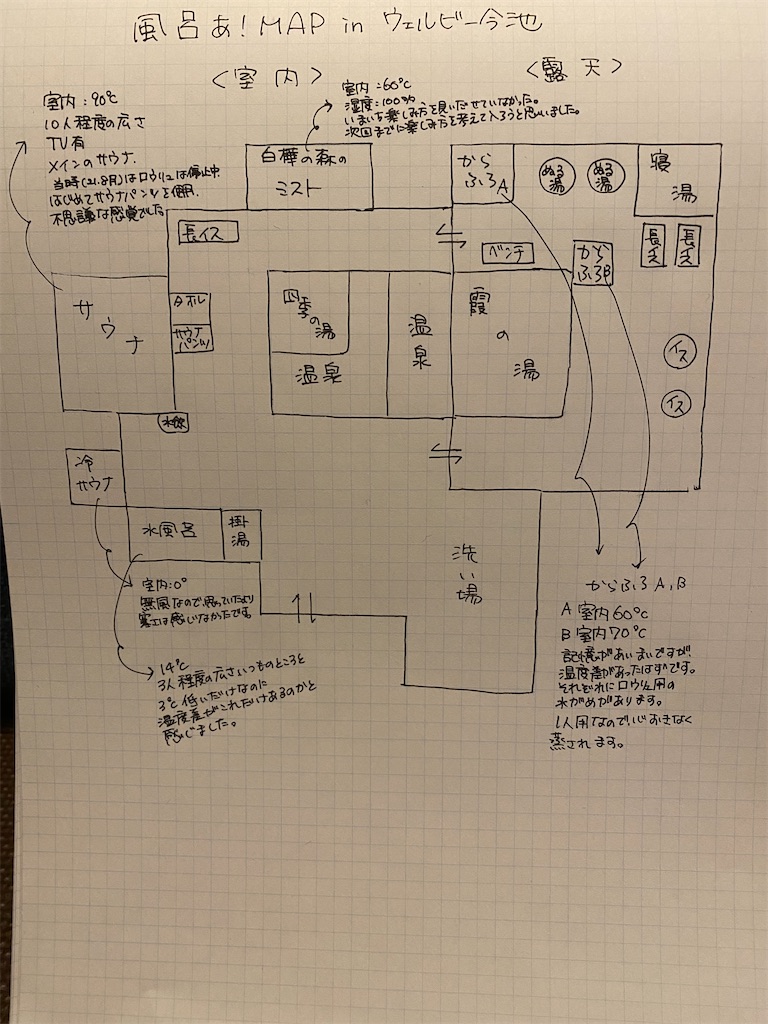 風呂あ！MAP in ウェルビー今池
〈室内〉
〈露天〉
室内：90℃
10人程度の広さ
TV有
メインのサウナ.
当時(21.8月)はロウリュは停止中
はじめてサウナパンツを使用.
不思議な感覚でした
室内：60℃
湿度：100%.
いまいち楽しみ方を見いだせていなかった。
次回までに楽しみ方を考えて入ろうと思いました。
白樺の森の
ミスト
から
ふろA
ぬる
湯
ぬる
湯
寝
湯
長イス
ベンチ
から
ふろB
長イス
長イス
サウナ
タオル
サウナ
パンツ
四季の湯
温泉
温泉
霞の湯
イス
イス
水飲
冷
サウナ
水風呂
掛湯
洗い場
室内：0°
無風なので思っていたより
寒さは感じなかったです。
14℃
3人程度の広さいつものところと
3℃低いだけなのに
温度差がこれだけあるのかと
感じました。
からふろA,B
A 室内60℃
B 室内70℃
記憶があいまいですが.
温度差があったはずです。
それぞれにロウリュ用の
水がめがあります。
1人用なので心おきなく
蒸されます。